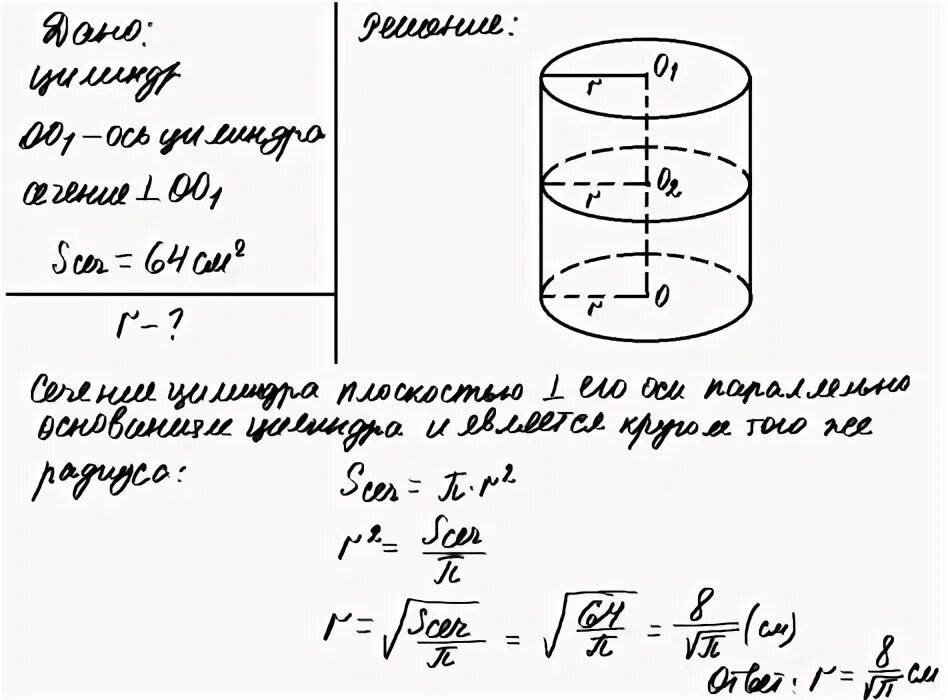 Дано:
цилиндр
OO₁ – ось цилиндра
сечение ⊥ OO₁
Sсеч = 64 см²
r – ?
Решение:
O₁
r
O₂
r
O
r
Сечение цилиндра плоскостью ⊥ его оси параллельно
основаниям цилиндра и является кругом того же
радиуса:
Sсеч = π · r²
r² = Sсеч/π
r = √(Sсеч/π) = √(64/π) = 8/√π (см)
Ответ: r = 8/√π см